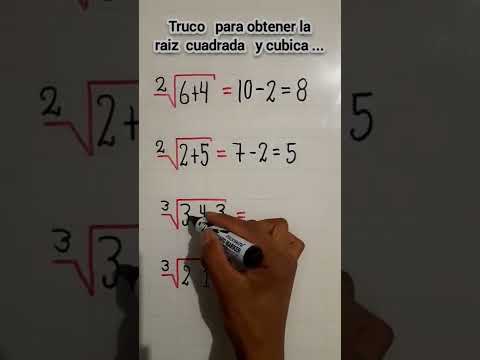 Truco para obtener la
raiz cuadrada y cubica ...
²√6+4 = 10-2=8
²√2+5 = 7-2=5
³√3 4 3 =
³√2